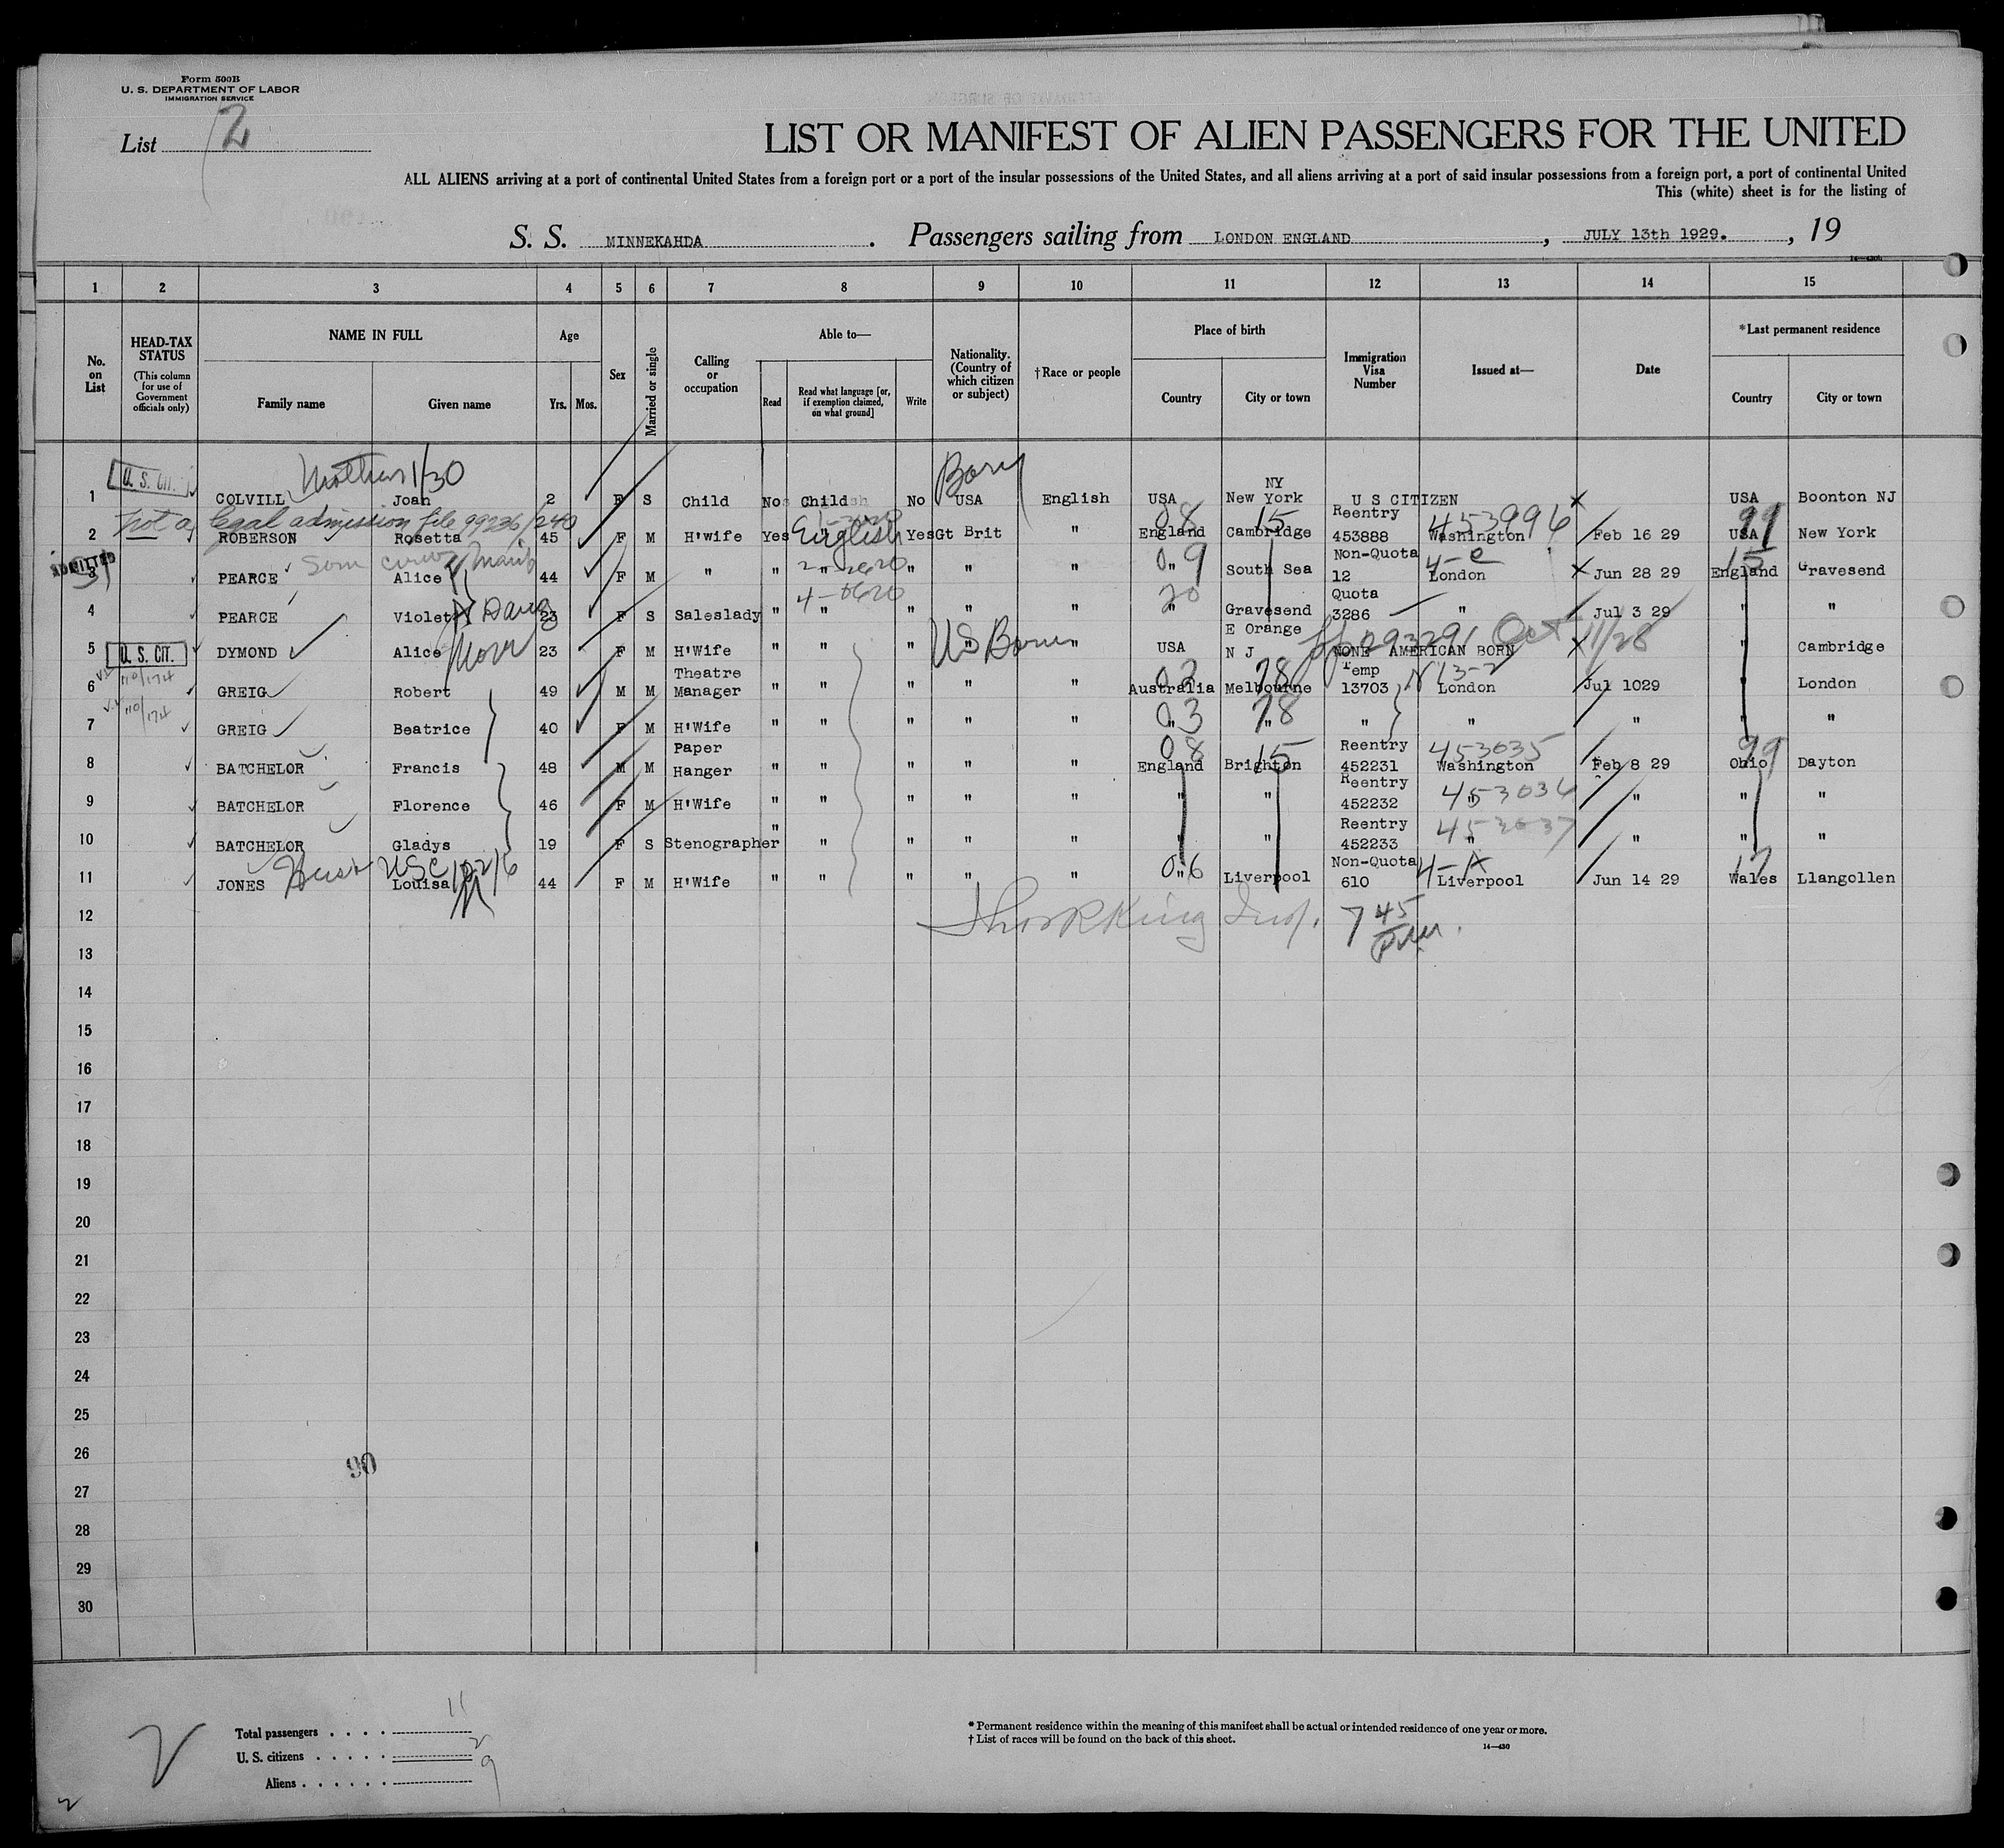 Form 500B
U. S. DEPARTMENT OF LABOR
IMMIGRATION SERVICE
List 2
LIST OR MANIFEST OF ALIEN PASSENGERS FOR THE UNITED
ALL ALIENS arriving at a port of continental United States from a foreign port or a port of the insular possessions of the United States, and all aliens arriving at a port of said insular possessions from a foreign port, a port of continental United
This (white) sheet is for the listing of
S. S. MINNEKAHDA . Passengers sailing from LONDON ENGLAND , JULY 13th 1929. , 19
1 2 3 4 5 6 7 8 9 10 11 12 13 14 15
No. on List
HEAD-TAX STATUS (This column for use of Government officials only)
NAME IN FULL Family name Given name
Age Yrs. Mos.
Sex
Married or single
Calling or occupation
Able to— Read Read what language [or, if exemption claimed, on what ground] Write
Nationality. (Country of which citizen or subject)
†Race or people
Place of birth Country City or town
Immigration Visa Number
Issued at—
Date
*Last permanent residence Country City or town
Mother 1/30 Born
1 U. S. CIT. COLVILL Joan 2 F S Child No Child No USA English USA New York NY U S CITIZEN USA Boonton NJ
not a legal admission file 99236/240
2 ROBERSON Rosetta 45 F M H'wife Yes English Yes Gt Brit " England Cambridge Reentry 453888 Washington 453994 Feb 16 29 USA New York
ADMITTED
3 PEARCE Alice 44 F M " " " " " " " South Sea Non-Quota 12 London Jun 28 29 England Gravesend
4 PEARCE Violet 23 F S Saleslady " " " " " " Gravesend Quota 3286 " Jul 3 29 " "
5 U. S. CIT. DYMOND Alice 23 F M H'Wife " " " " US Born " USA E Orange N J NONE AMERICAN BORN Oct 11/28 " Cambridge
6 GREIG Robert 49 M M Theatre Manager " " " " " Australia Melbourne Temp 13703 London Jul 1029 " London
7 GREIG Beatrice 40 F M H'Wife " " " " " " " " " " " "
8 BATCHELOR Francis 48 M M Paper Hanger " " " " " England Brighton Reentry 452231 Washington 453035 Feb 8 29 Ohio Dayton
9 BATCHELOR Florence 46 F M H'Wife " " " " " " " Reentry 452232 " 453036 " " "
10 BATCHELOR Gladys 19 F S Stenographer " " " " " " " Reentry 452233 " 453037 " " "
11 JONES Louisa 44 F M H'Wife " " " " " " Liverpool Non-Quota 610 Liverpool 4-A Jun 14 29 Wales Llangollen
12 King Insp. 7 45
13
14
15
16
17
18
19
20
21
22
23
24
25
26
90
27
28
29
30
Total passengers . . . . 11
U. S. citizens . . . . . 2
Aliens . . . . . . 9
* Permanent residence within the meaning of this manifest shall be actual or intended residence of one year or more.
† List of races will be found on the back of this sheet.
14—430
2